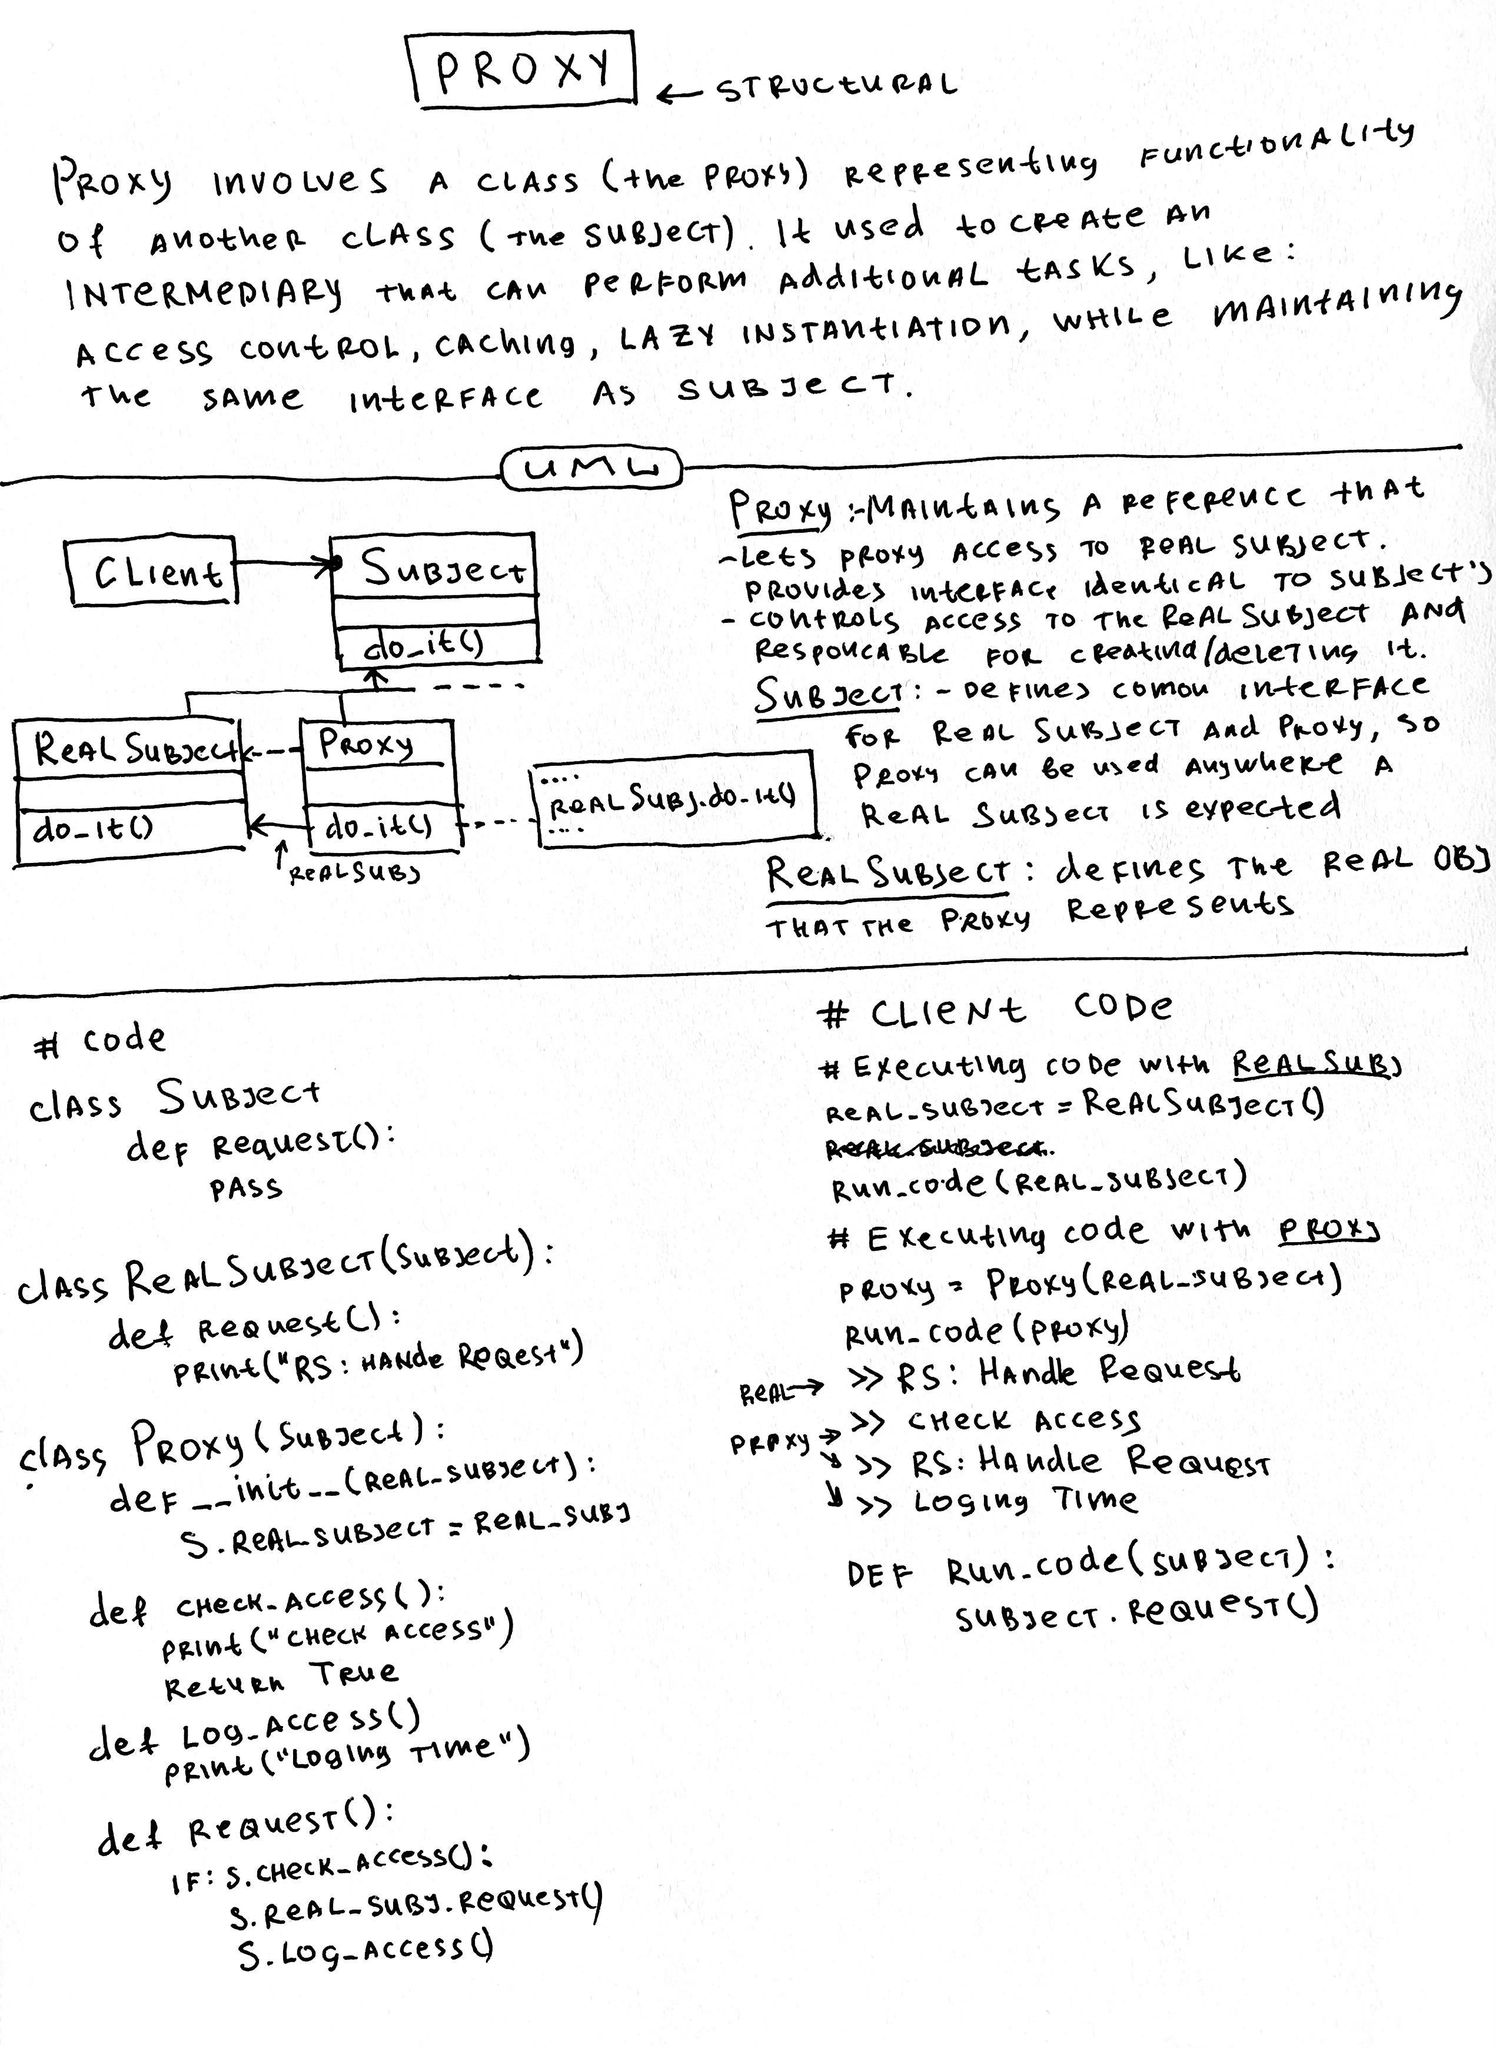 PROXY
← STRUCTURAL
PROXY INVOLVES A CLASS (the PROXY) REPRESENTING FUNCTIONALITY
OF ANOTHER CLASS (THE SUBJECT). It used to CREATE AN
INTERMEDIARY THAT CAN PERFORM ADDITIONAL TASKS, LIKE:
ACCESS CONTROL, CACHING, LAZY INSTANTIATION, WHILE MAINTAINING
THE SAME INTERFACE AS SUBJECT.
UML
CLient
SUBJECT
do_it()
REAL SUBJECT
do_it()
PROXY
do_it()
REALSUBJ
....
REALSUBJ.do_it()
....
PROXY:-MAINTAINS A REFERENCE THAT
-LETS PROXY ACCESS TO REAL SUBJECT.
PROVIDES INTERFACE IDENTICAL TO SUBJECT'S
- CONTROLS ACCESS TO THE REAL SUBJECT AND
RESPONCABLE FOR CREATING/DELETING It.
SUBJECT: - DEFINES COMON INTERFACE
FOR REAL SUBJECT AND PROXY, SO
PROXY CAN BE USED ANYWHERE A
REAL SUBJECT IS EXPECTED
REALSUBJECT: DEFINES THE REAL OBJ
THAT THE PROXY REPRESENTS
# code
class SUBJECT
def REQUEST():
PASS
class REALSUBJECT(SUBJECT):
def REQUEST():
PRINT("RS: HANDe REQEST")
class PROXY(SUBJECT):
def __init__(REAL_SUBJECT):
S.REAL_SUBJECT = REAL_SUBJ
def CHECK_ACCESS():
PRINT("CHECK ACCESS")
RETURN TRUE
def LOG_ACCESS()
PRINT("LOGING TIME")
def REQUEST():
IF: S.CHECK_ACCESS():
S.REAL_SUBJ.REQUEST()
S.LOG_ACCESS()
# CLIENT CODE
# EXECUTING CODE WITH REALSUBJ
REAL_SUBJECT = REALSUBJECT()
REAL_SUBJECT.
RUN_code(REAL_SUBJECT)
# EXECUTING CODE WITH PROXY
PROXY = PROXY(REAL_SUBJECT)
RUN_code(PROXY)
REAL→ >> RS: HANDLE REQUEST
PROXY→ >> CHECK ACCESS
>> RS: HANDLE REQUEST
>> LOGING TIME
DEF RUN_code(SUBJECT):
SUBJECT.REQUEST()